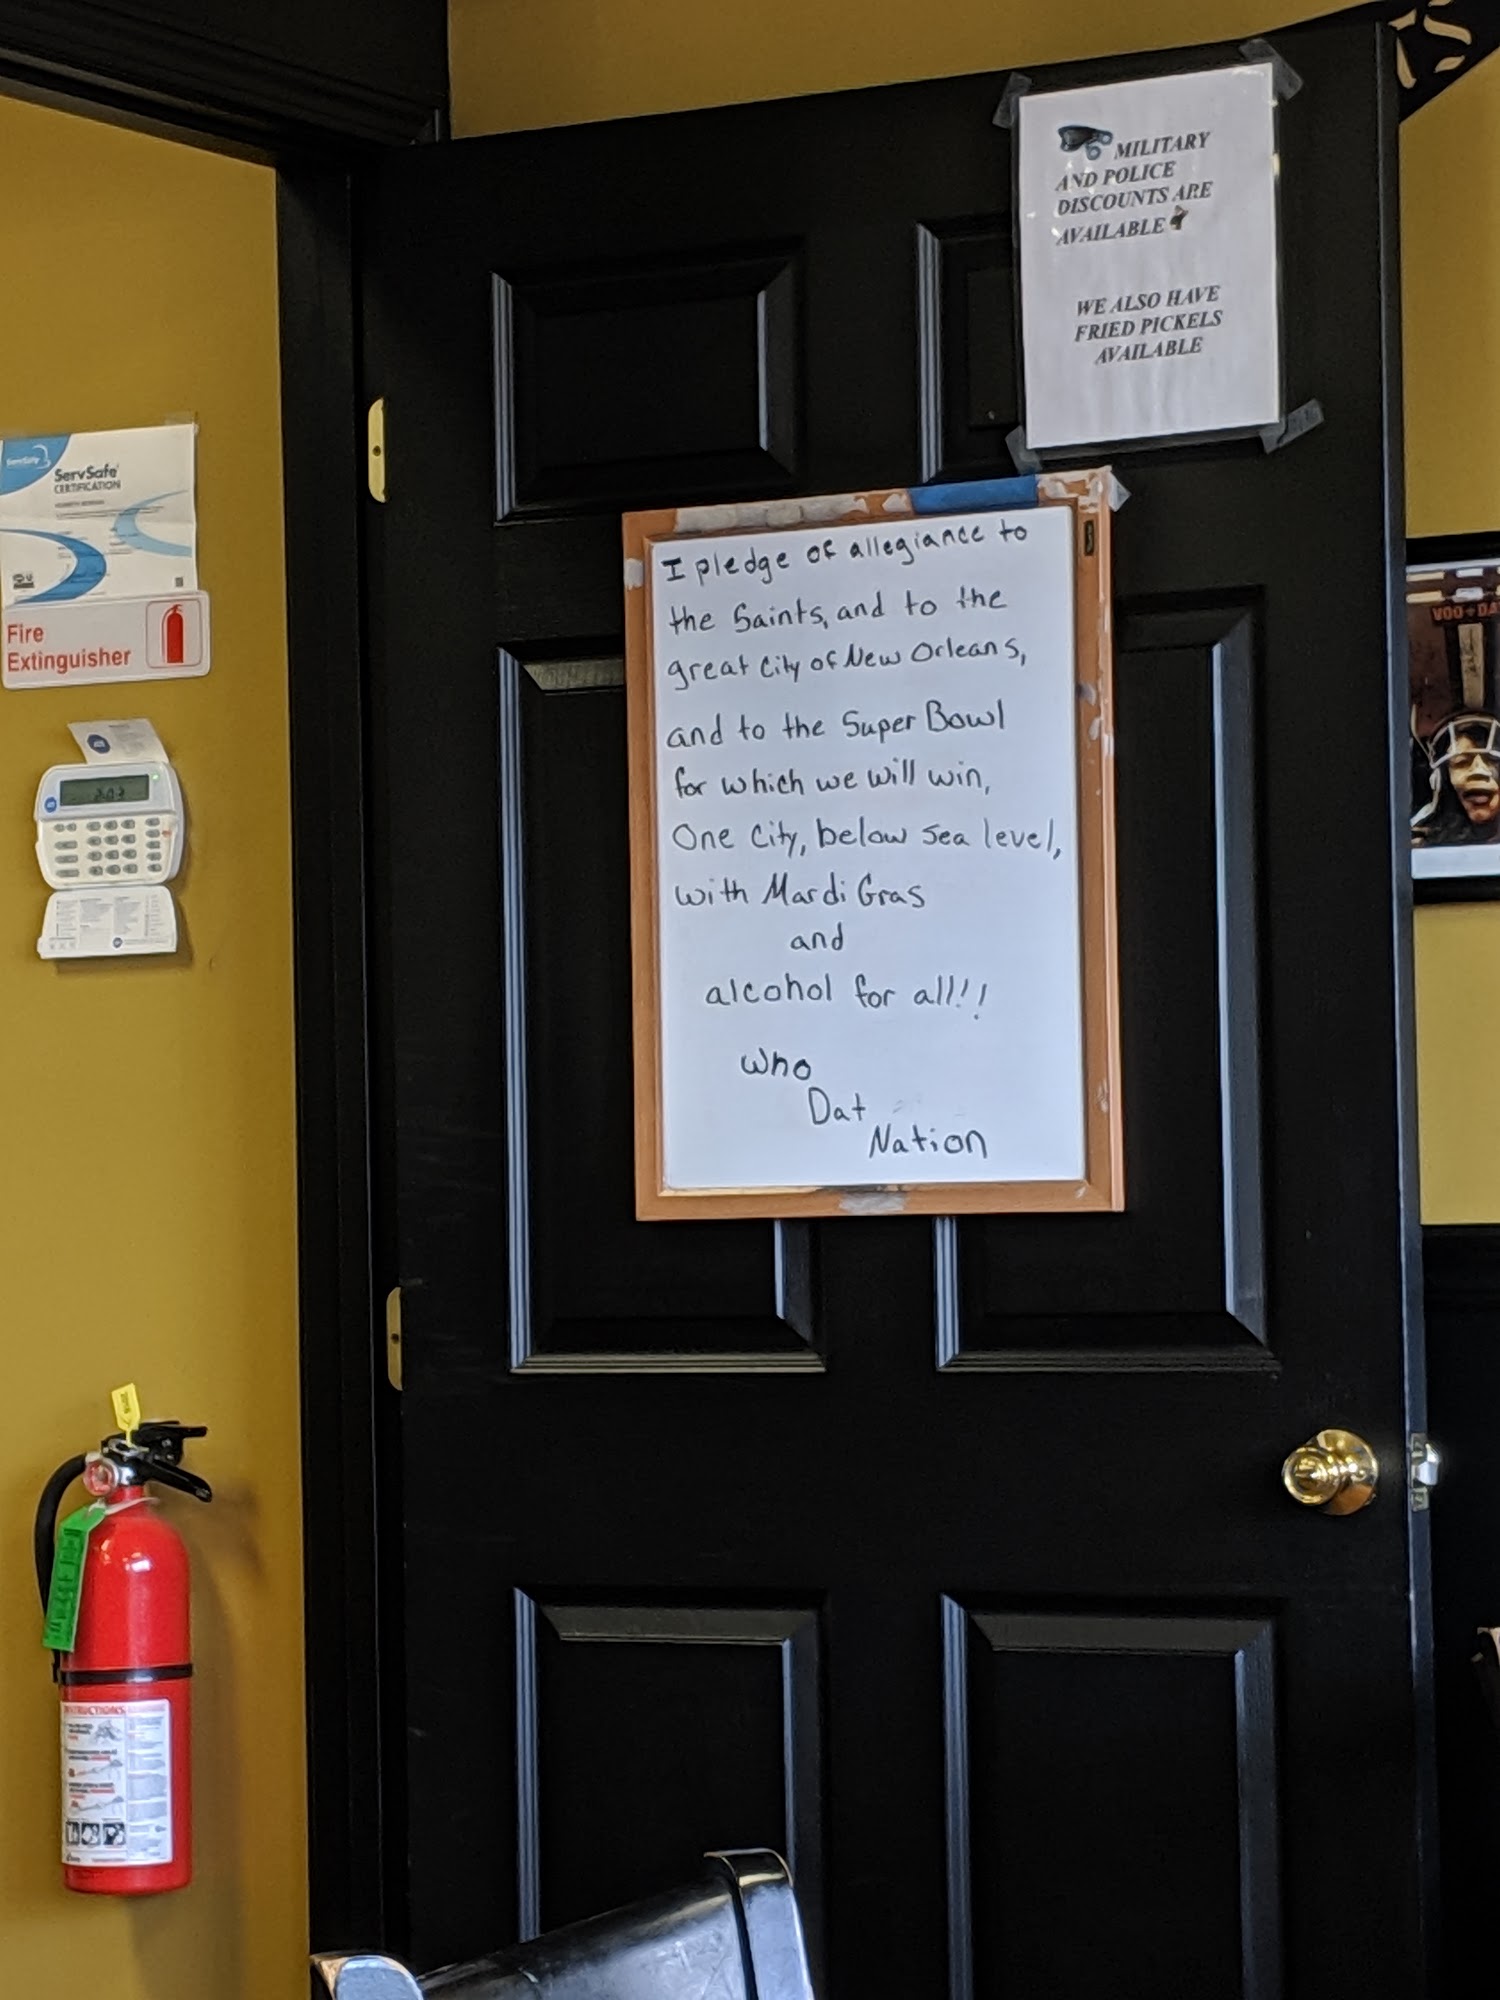 MILITARY
AND POLICE
DISCOUNTS ARE
AVAILABLE
WE ALSO HAVE
FRIED PICKELS
AVAILABLE
ServSafe
CERTIFICATION
Fire
Extinguisher
I pledge of allegiance to
the Saints, and to the
great City of New Orleans,
and to the Super Bowl
for which we will win,
One City, below sea level,
with Mardi Gras
and
alcohol for all!!
Who
Dat
Nation
INSTRUCTIONS